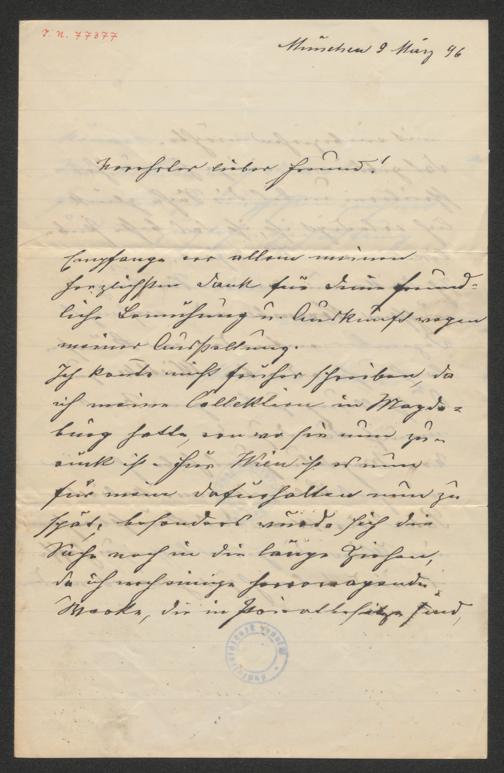 J. N. 77377
München 9 März 96
Verehrter lieber Freund!
Empfange vor allem meinen
herzlichsten Dank für Deine freund-
liche Bemühung u. Auskunft wegen
meiner Ausstellung.
Ich konte nicht früher schreiben, da
ich meine Collektion in Magde-
burg hatte, von wo sie nun zu-
rück ist. Für Wien ist es nun
für mein dafürhalten nun zu
spät, besonders würde sich die
Sache noch in die länge ziehen,
da ich noch einige hervorragende
Werke, die in Privatbesitze sind,